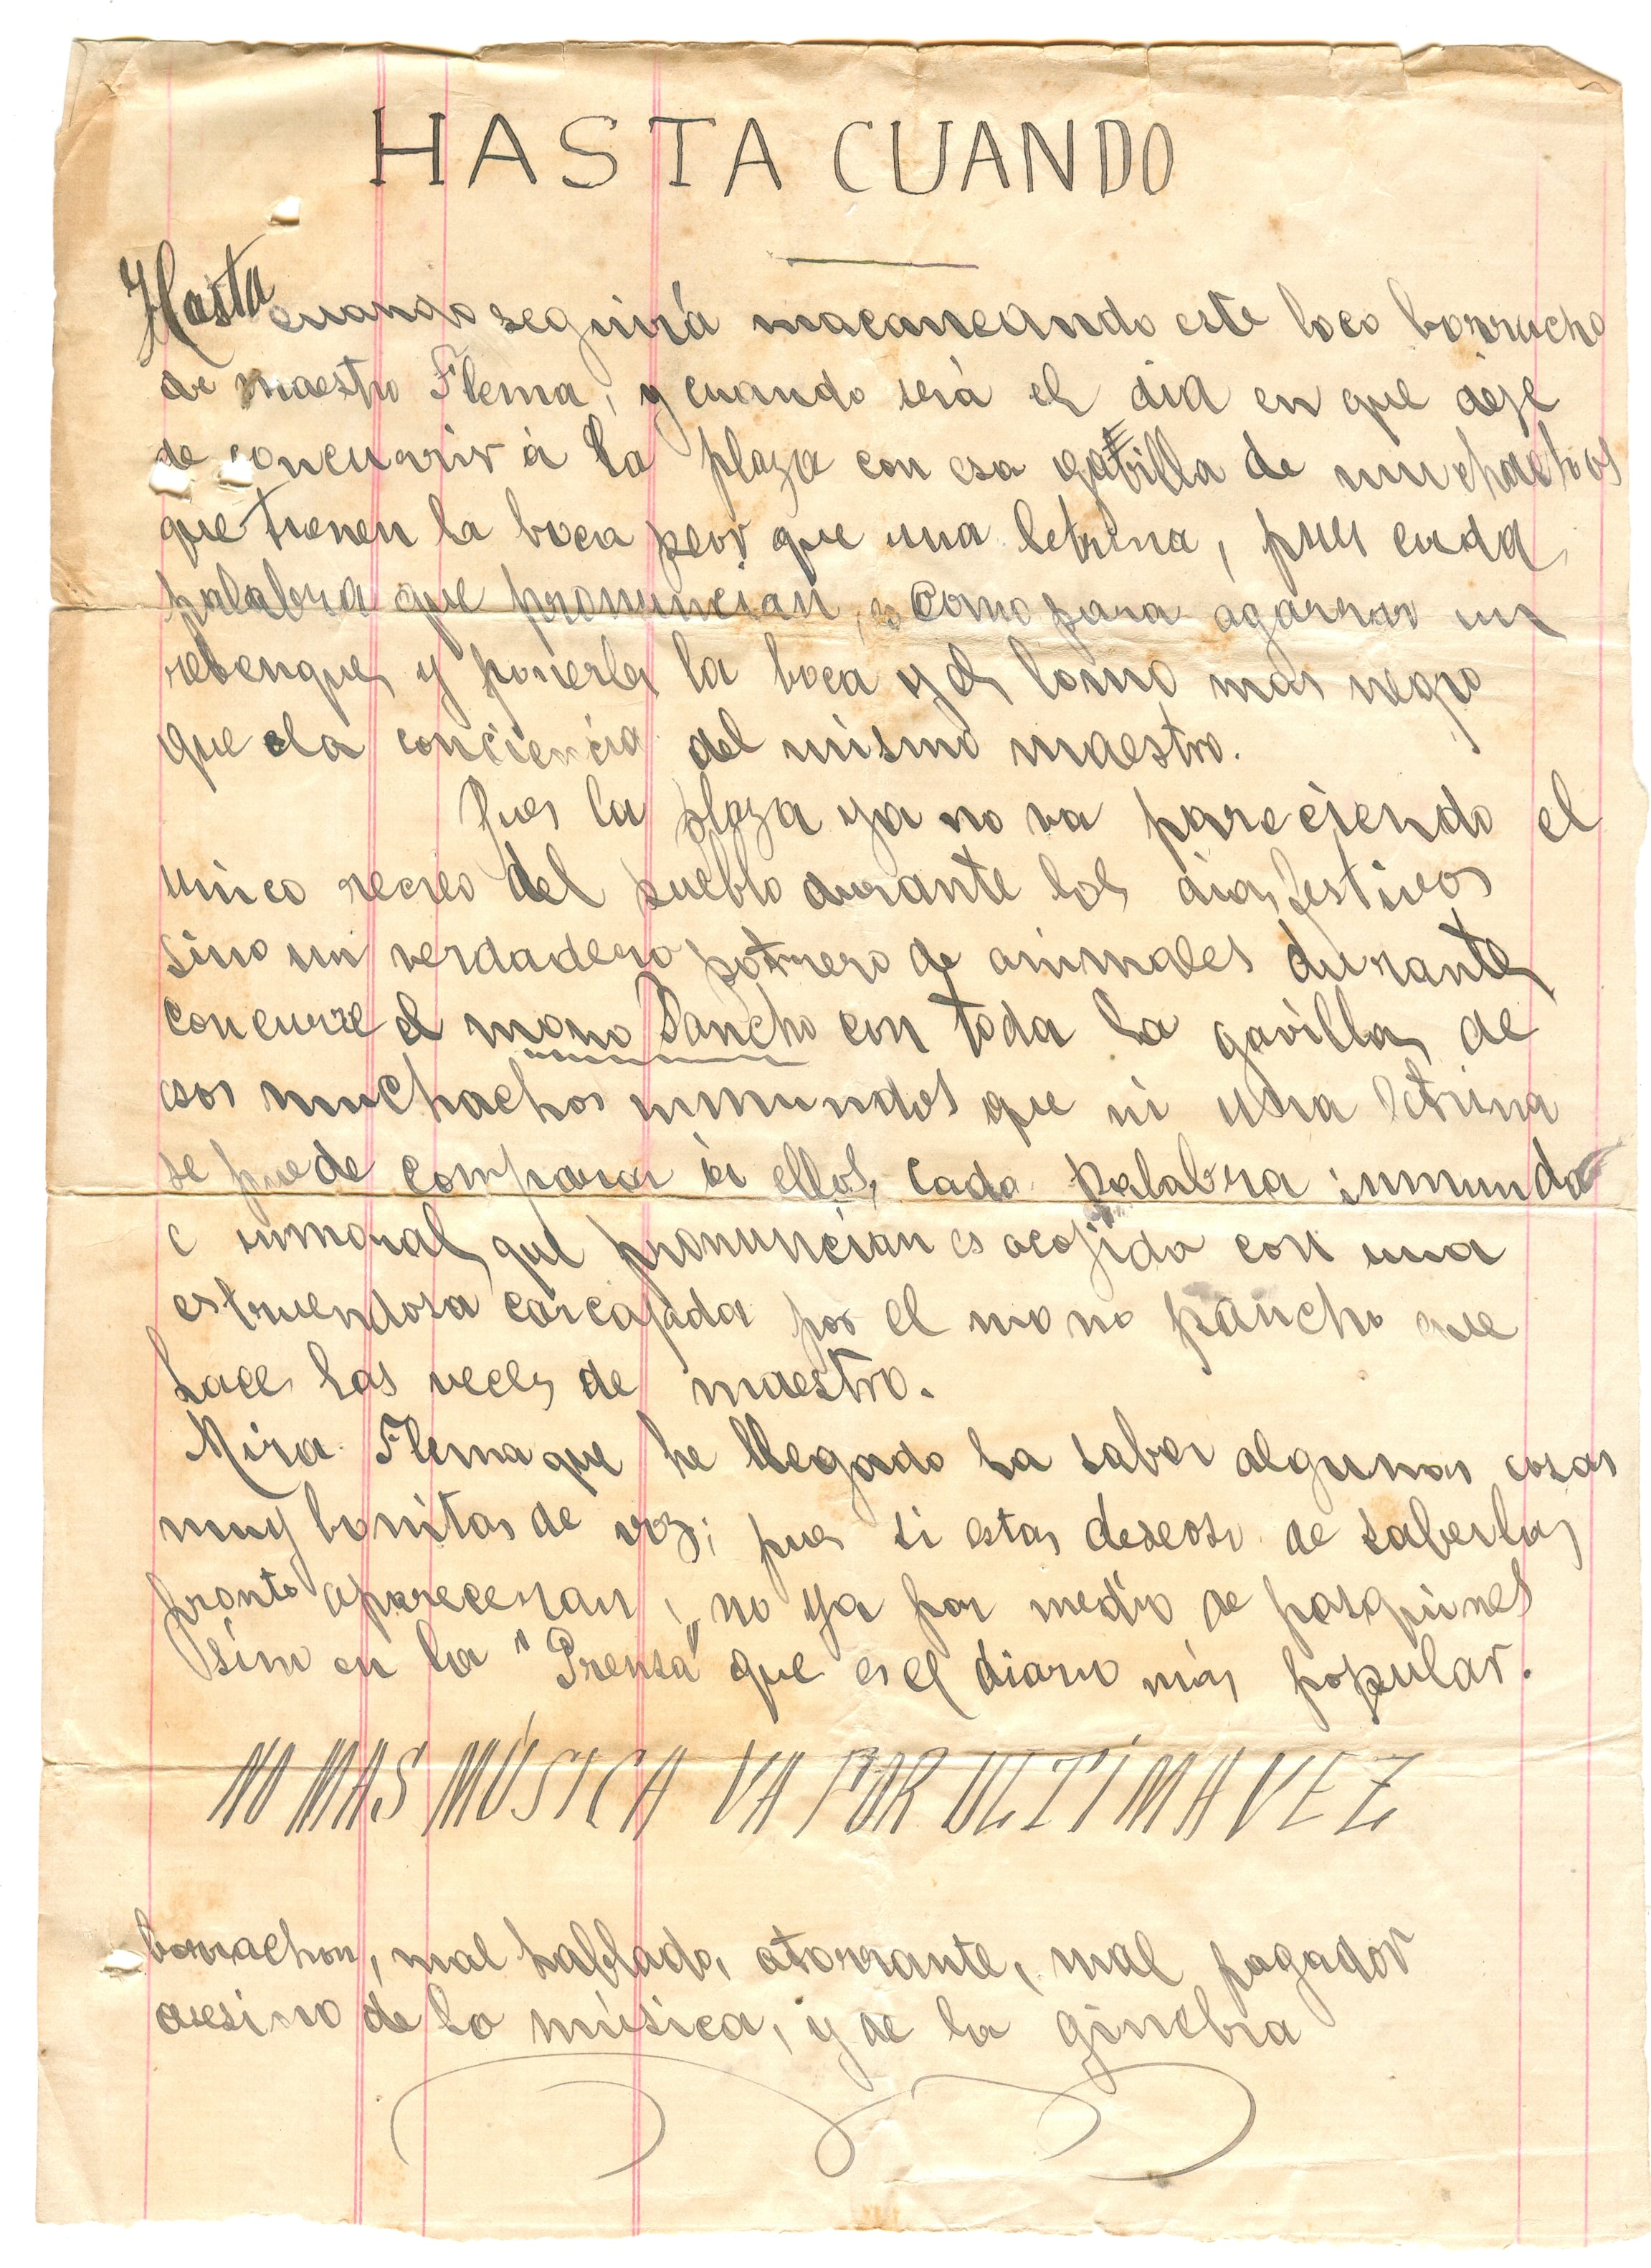 HASTA CUANDO
Hasta cuando seguirá macaneando este loco borracho
de maestro Flema, y cuando será el dia en que deje
de concurrir á la plaza con esa gabilla de muchachos
que tienen la boca peor que una letrina, pues cada
palabra que pronuncian, es como para agarrar un
rebenque, y ponerles la boca y el lomo mas negro
que la conciencia del mismo maestro.
Pues la plaza ya no va pareciendo el
unico recreo del pueblo durante los dias festivos
sino un verdadero potrero de animales durante
concurre el mono Pancho con toda la gavilla, de
esos muchachos inmundos que ni una letrina
se puede comparar á ellos, cada palabra inmunda
é inmoral que pronuncian es acojida con una
estruendosa carcajada por el mono pancho que
hace las veces de maestro.
Mira Flema que he llegado ha saber algunas cosas
muy bonitas de voz; pues si estas deseoso de saberlas
pronto apareceran, no ya por medio de pasquines
sino en la "Prensa" que es el diario más popular.
NO MAS MÚSICA VA POR ULTIMA VEZ
borrachon, mal hablado, atorrante, mal pagador
asesino de la música, y de la ginebra